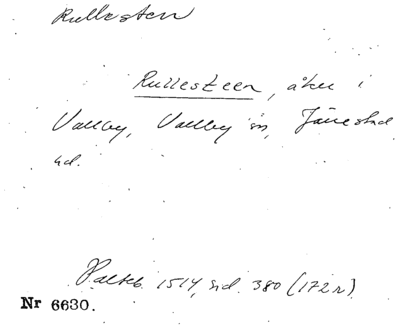 Rullesten
Rullesteen, åker i
Vallby, Vallby sn, Järrestad
hd.
Palteb. 1514, sid. 380 (172 r).
Nr 6630.